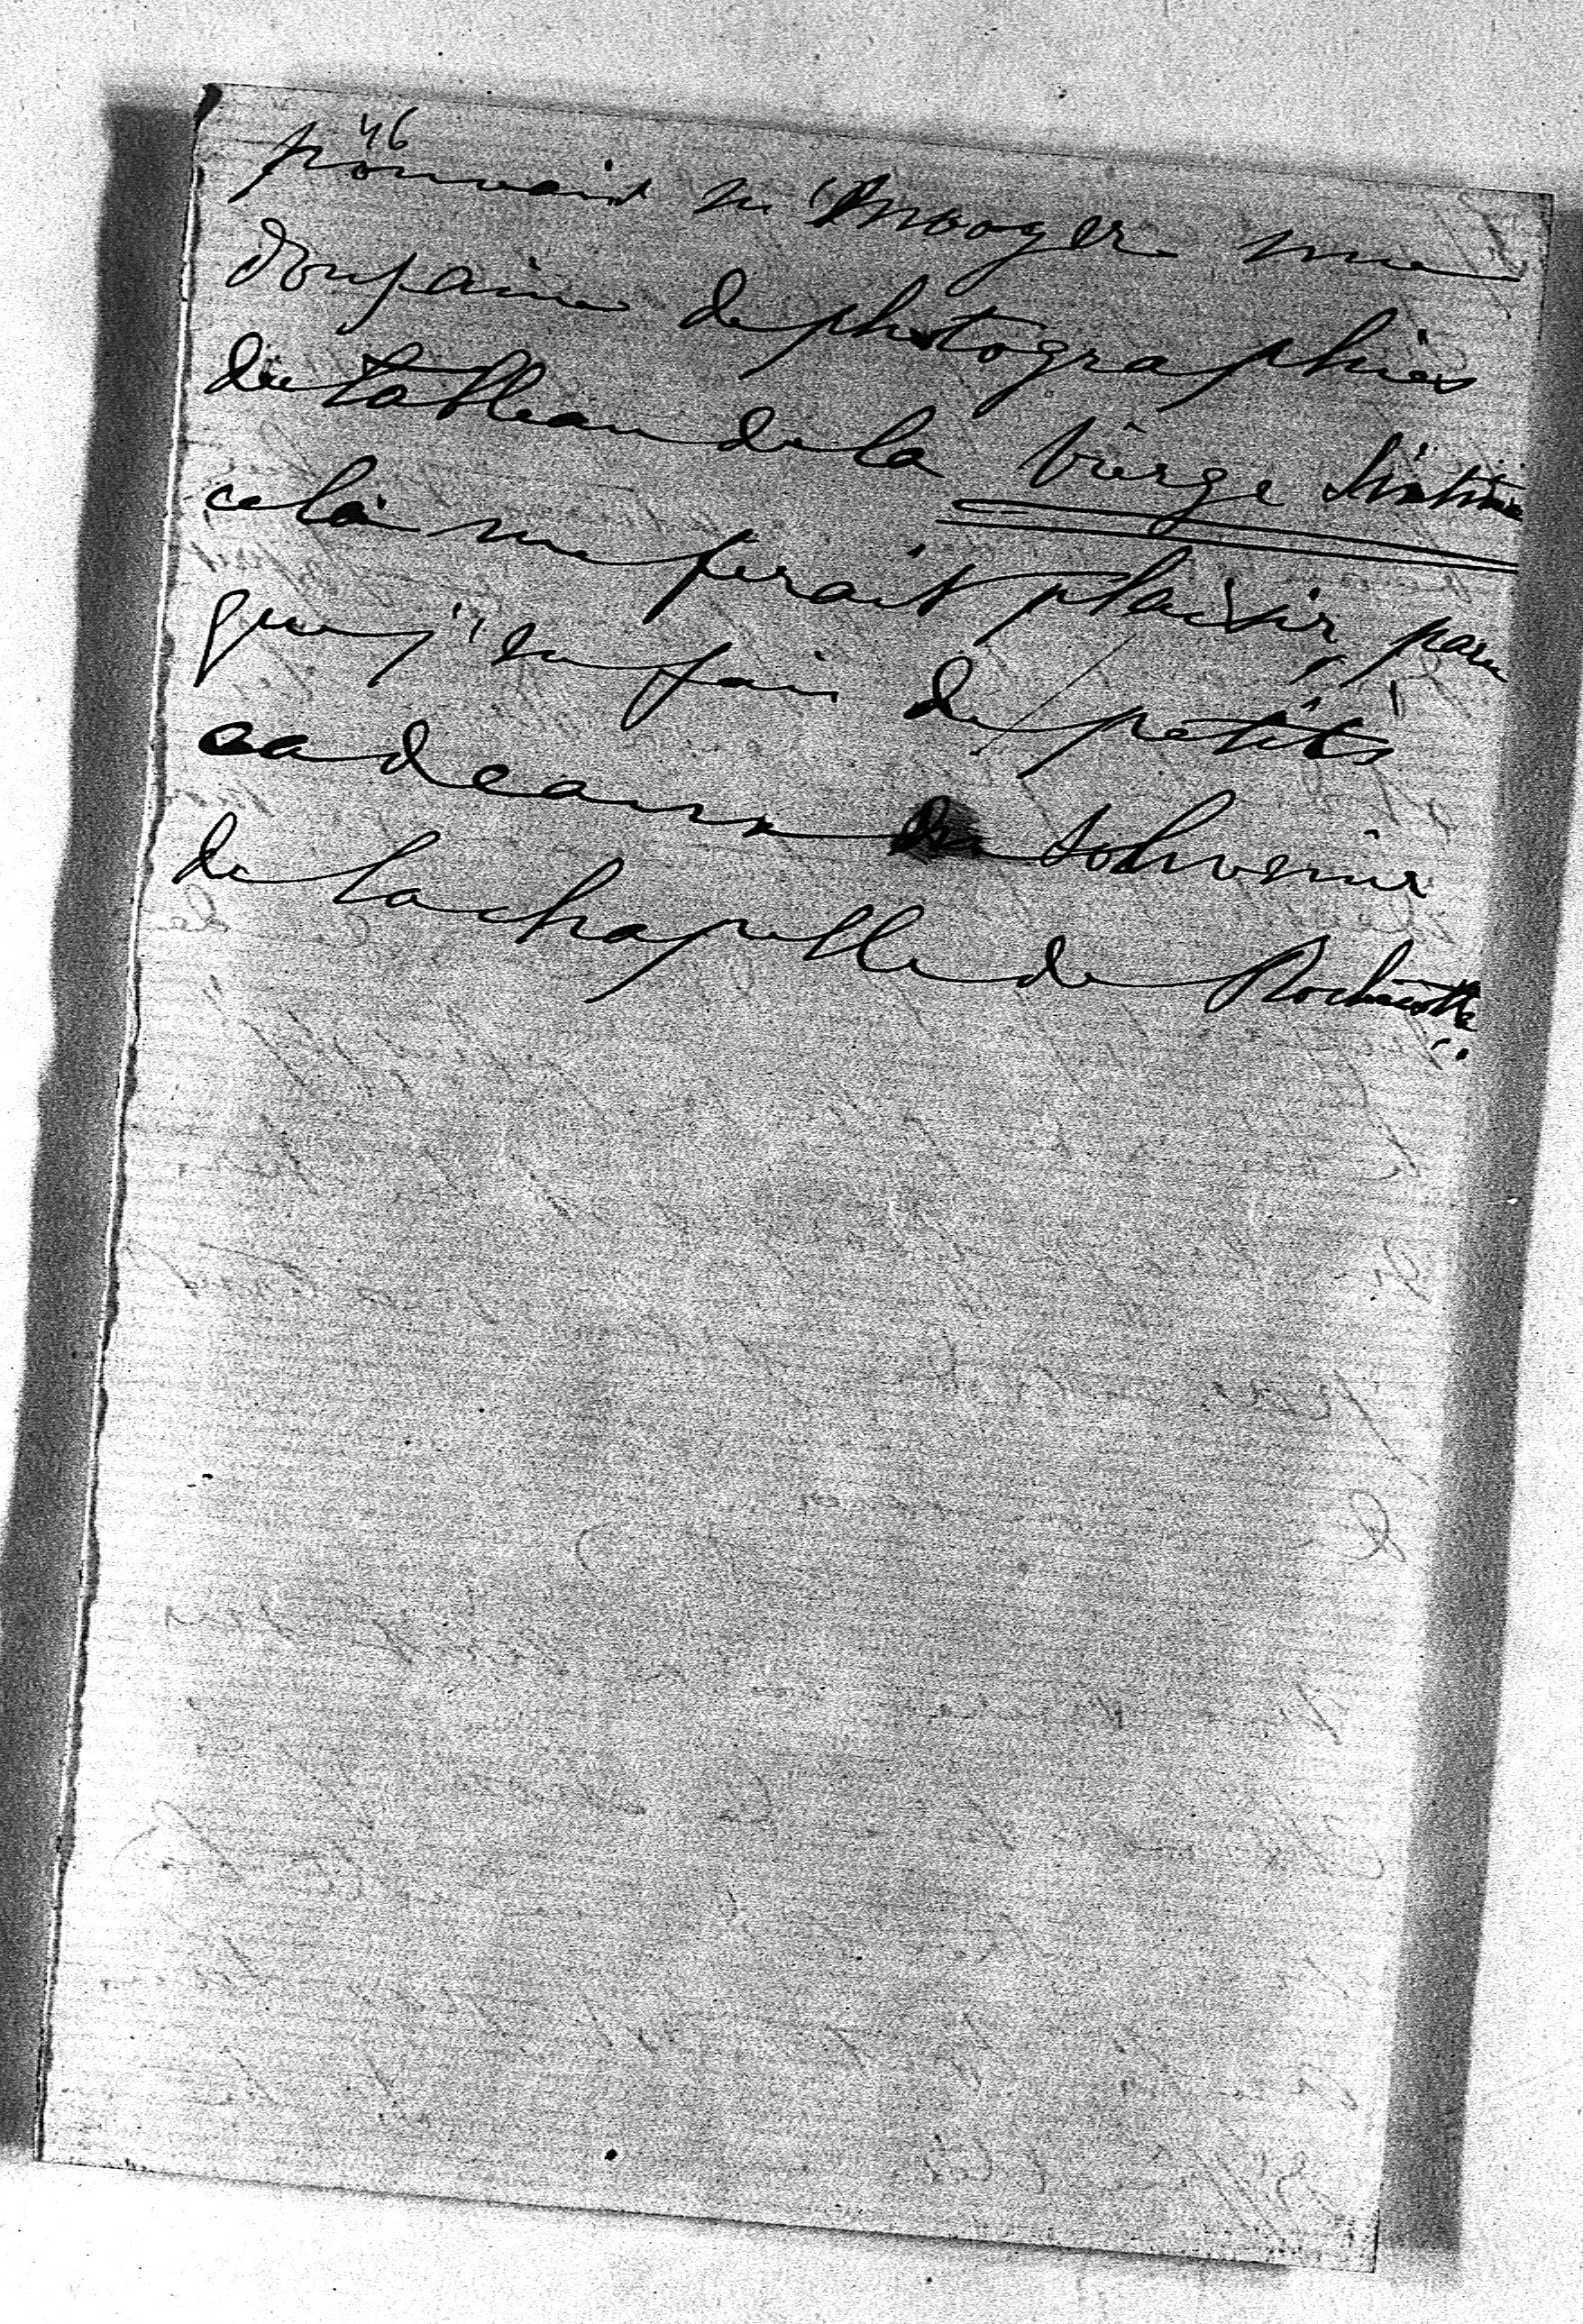 46
pouvait m'envoyer une
douzaine de photographies
du tableau de la Vierge Sixtine
cela me ferait plaisir, parce
que j'en fais de petits
cadeaux de souvenir
de la chapelle de Rochecotte.